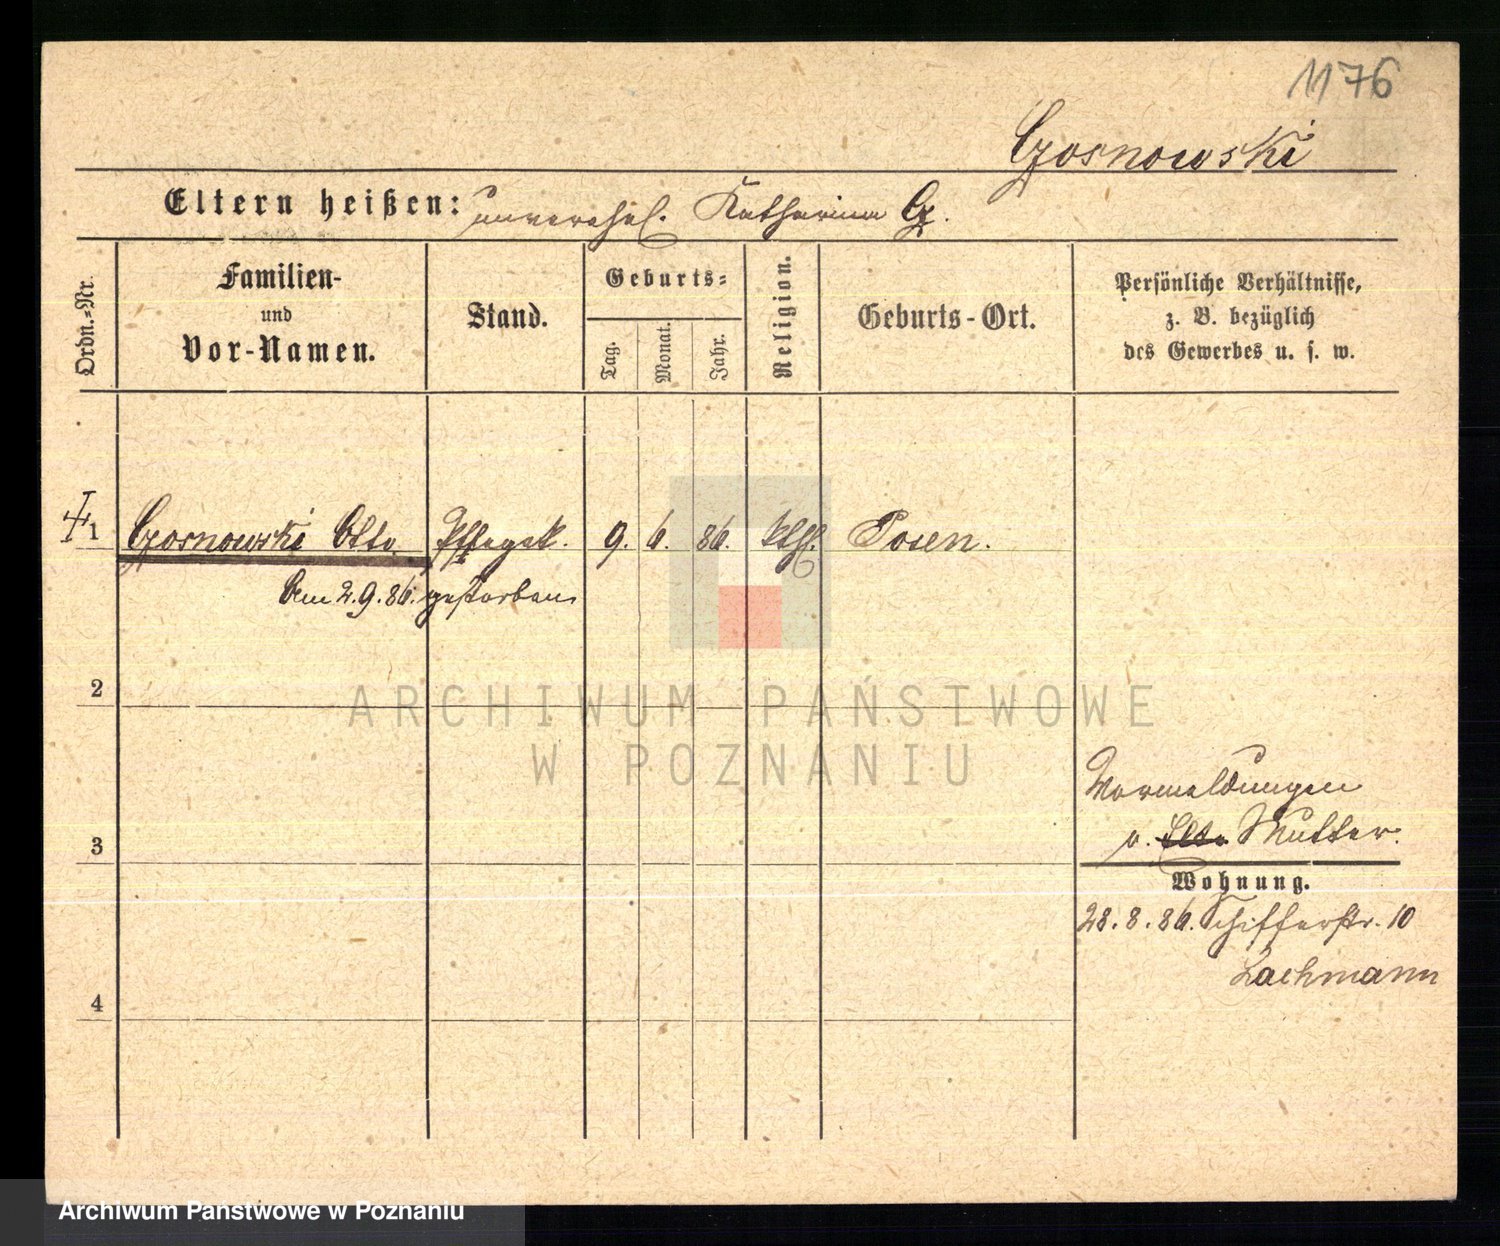 1176
Gosnowski
Eltern heißen: unverehel. Katharina G.
Ordn.=Nr.
Familien-
und
Vor-Namen.
Stand.
Geburts=
Tag.
Monat.
Jahr.
Religion.
Geburts-Ort.
Persönliche Verhältnisse,
z. B. bezüglich
des Gewerbes u. s. w.
1 Gosnowski Otto. Pflegek. 9. 6. 86. kthl. Posen.
Am 2.9.86. gestorben
2
ARCHIWUM PAŃSTWOWE
W POZNANIU
Vormeldungen
v. Elt. Mutter.
3
Wohnung.
28.8.86. Schifferstr. 10
Lachmann
4
Archiwum Państwowe w Poznaniu